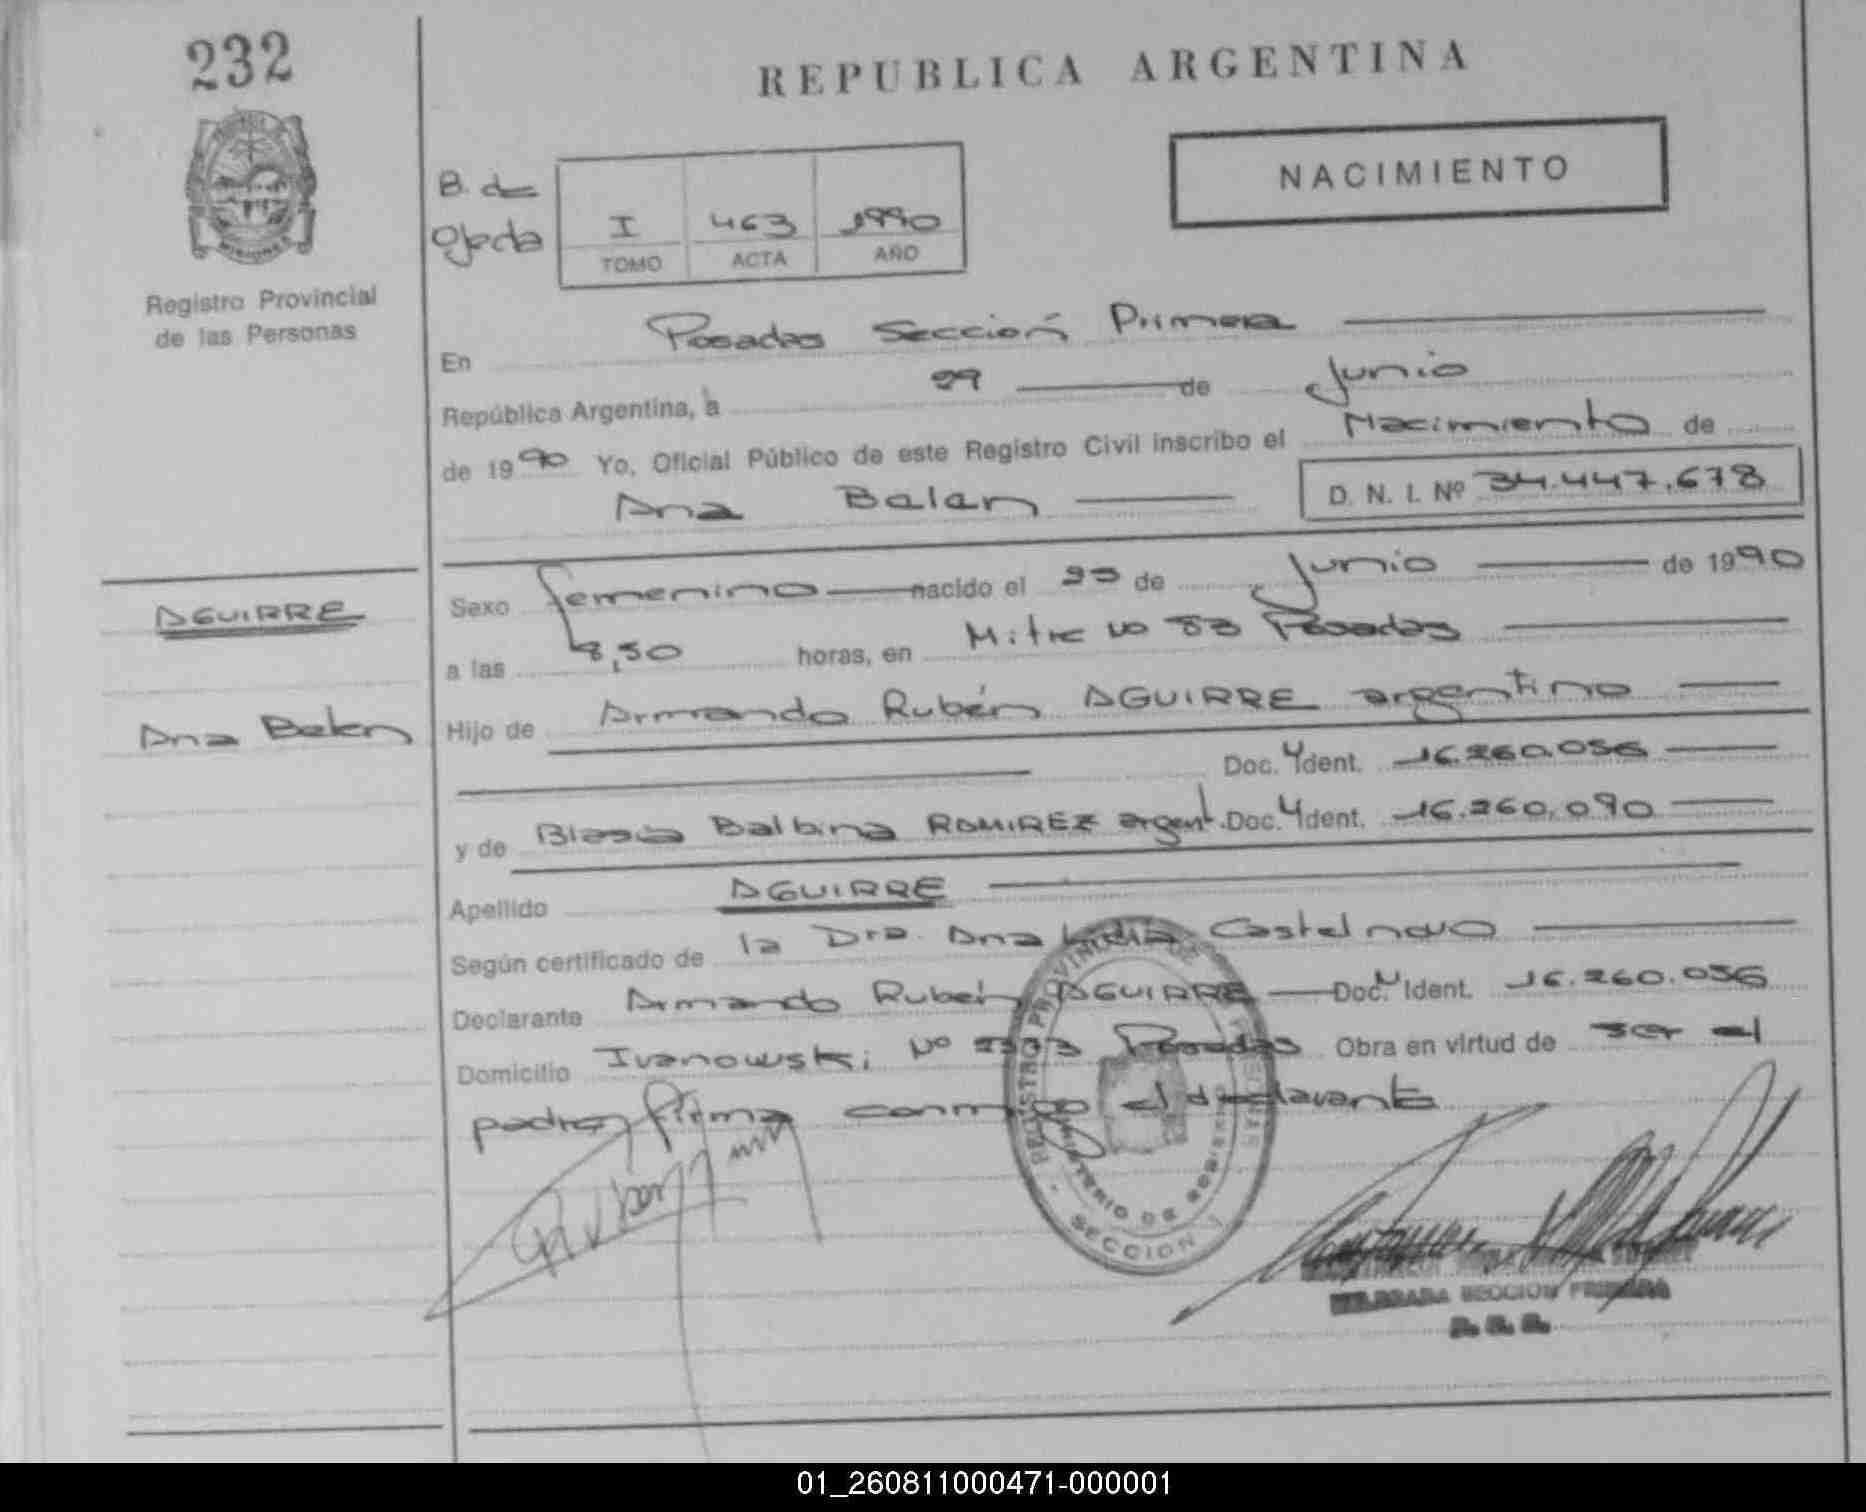 232
REPUBLICA ARGENTINA
NACIMIENTO
B. de Ojeda
I 463 1990
TOMO ACTA AÑO
Registro Provincial
de las Personas
En Posadas Sección Primera
República Argentina, a 29 de Junio
de 1990 Yo, Oficial Público de este Registro Civil inscribo el Nacimiento de
Ana Belen D. N. I. Nº 34.447.678
Sexo femenino nacido el de Junio de 1990
AGUIRRE
a las 8,50 horas, en Mitre No Posadas
Ana Belen
Hijo de Armando Rubén AGUIRRE argentino
Doc. Ident. 16.260.056
y de Blasia Balbina ROMIREZ argent. Doc. Ident. 16.260.090
Apellido AGUIRRE
Según certificado de la Dra. Ana Lidia Castelnovo
Declarante Armando Rubén AGUIRRE Doc. Ident. 16.260.056
Domicilio Ivanowski Nº Posadas Obra en virtud de ser el
padre, firma conmigo el declarante
REGISTRO PROVINCIAL DE LAS PERSONAS
MINISTERIO DE GOBIERNO
SECCION 1
DELEGADA SECCION PRIMERA
01_260811000471-000001